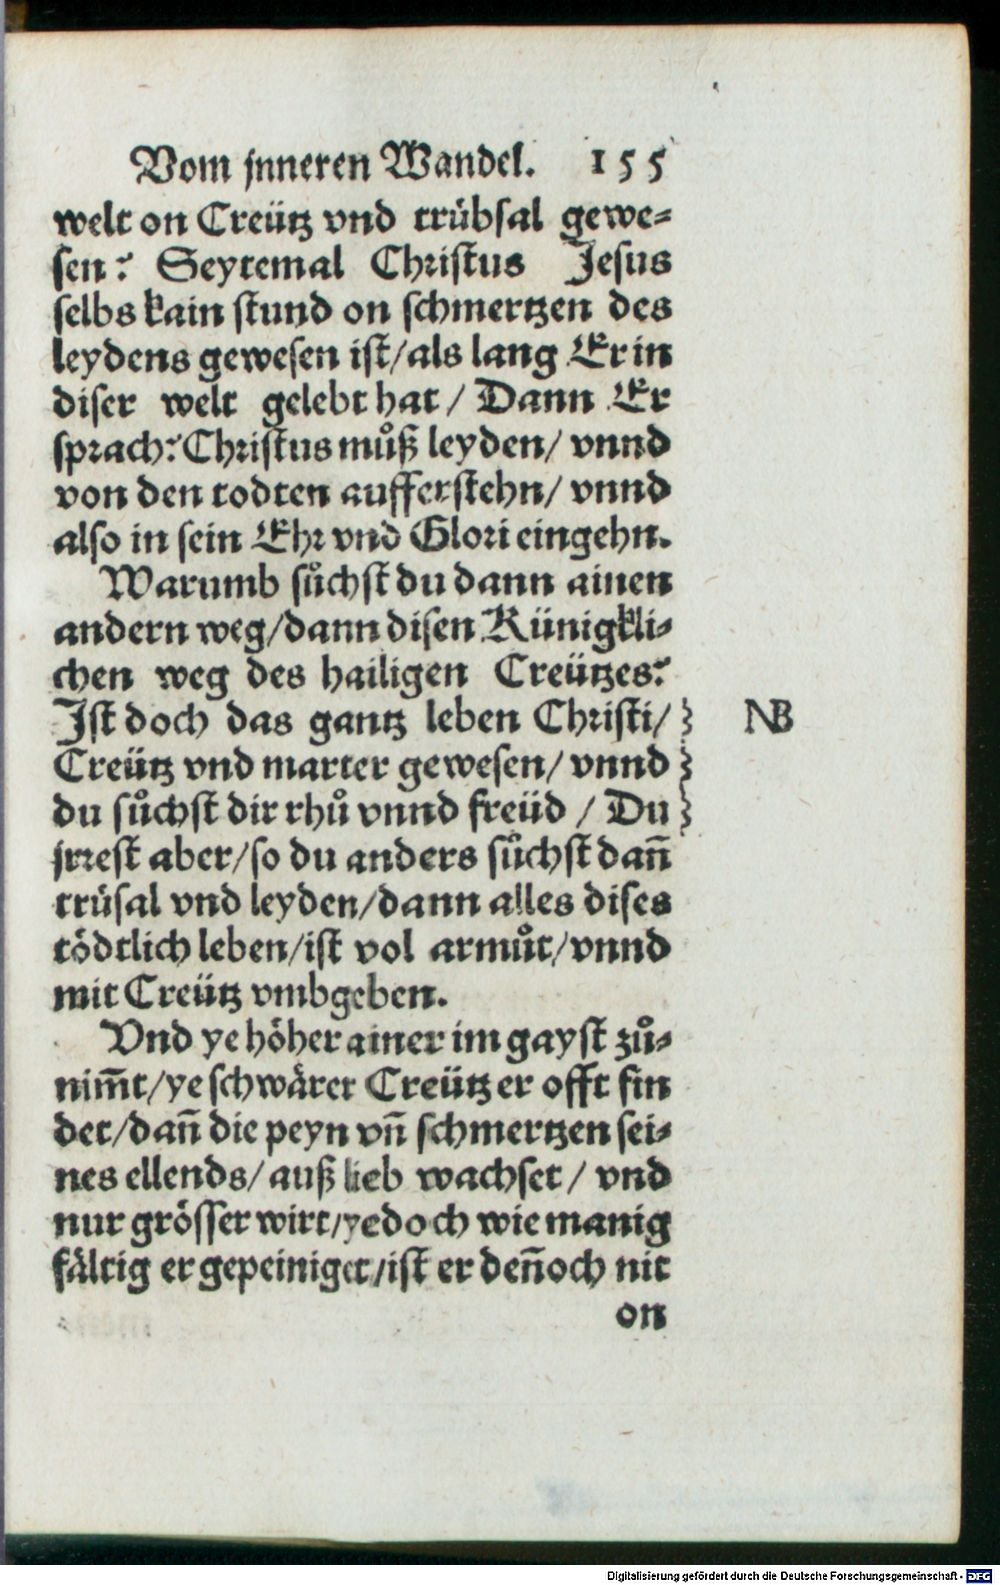 Vom jnneren Wandel. 155
welt on Creütz vnd trübsal gewe⸗
sen? Seytemal Christus Jesus
selbs kain stund on schmertzen des
leydens gewesen ist/als lang Er in
diser welt gelebt hat / Dann Er
sprach: Christus můß leyden/ vnnd
von den todten aufferstehn/ vnnd
also in sein Ehr vnd Glori eingehn.
Warumb sůchst du dann ainen
andern weg/dann disen Künigkli⸗
chen weg des hailigen Creützes?
Ist doch das gantz leben Christi/ NB
Creütz vnd marter gewesen/ vnnd
du sůchst dir rhů vnnd freüd / Du
jrrest aber/so du anders sůchst dañ
trüsal vnd leyden/dann alles dises
tödtlich leben/ist vol armůt/vnnd
mit Creütz vmbgeben.
Vnd ye höher ainer im gayst zů⸗
nim̃t/ye schwärer Creütz er offt fin
det/dañ die peyn vñ schmertzen sei⸗
nes ellends/ auß lieb wachset / vnd
nur grösser wirt/yedoch wie manig
fältig er gepeiniget/ist er deñoch nit
on
Digitalisierung gefördert durch die Deutsche Forschungsgemeinschaft - DFG